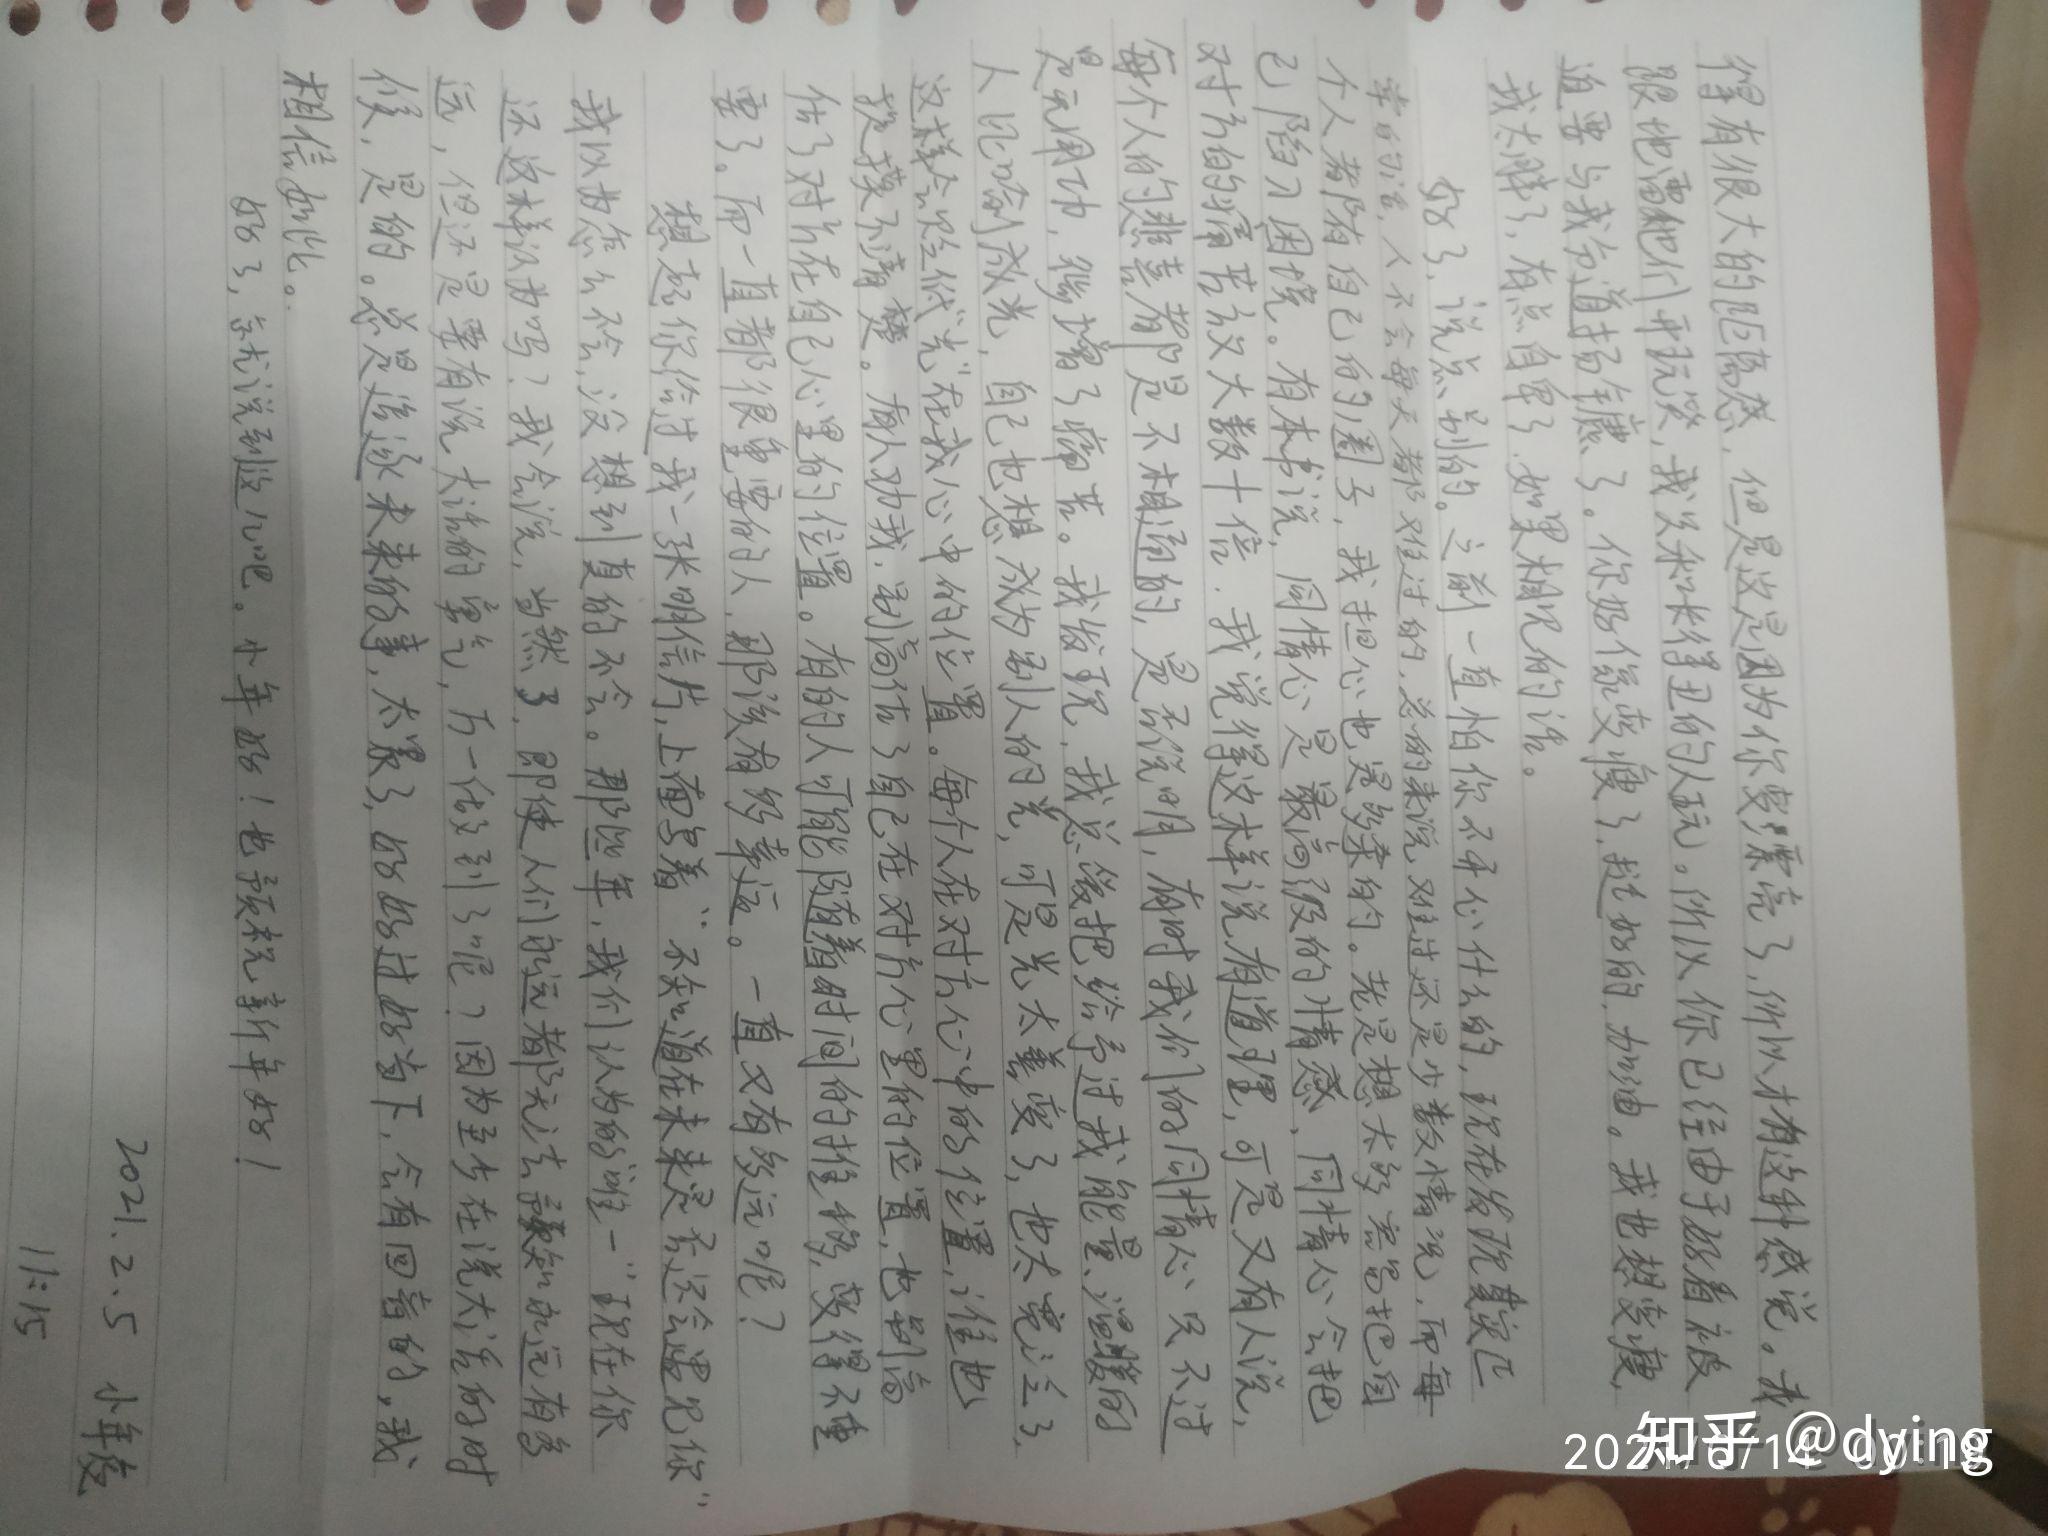 得有很大的距离感，但是这是因为你变漂亮了，所以才有这种感觉。我
跟他需他们开玩笑，我只和长得丑的人玩。所以你已经由于好看被
迫要与我分道扬镳了。你好像变瘦了，挺好的，加油。我也想变瘦，
我太胖了，有点自卑了，如果相见的话。
好了，说点别的。之前一直怕你不开心什么的，现在发现莫须
幸的话，人不会每天都难过的，总的来说难过还是少数情况，而每
个人都有自己的圈子，我担心也是多余的。老是想太多容易把自
己陷入困境。有本书说，同情心是最高级的情感，同情心会把
对方的痛苦放大数十倍，我觉得这样说有道理，可是又有人说，
每个人的悲喜都是不相通的，是否说明，有时我们的同情心只不过
是无用功，徒增了痛苦。我发现，我总像把给予过我能量、温暖的
人比喻成光，自己也想成为别人的光，可是光太善变了，也太宽泛了，
这样会降低光在我心中的位置。每个人在对方心中的位置，谁也
捉摸不清楚。有人劝我，别高估了自己在对方心里的位置，也别高
估了对方在自己心里的位置。有的人可能随着时间的推移，变得不重
要了。而一直都很重要的人，那该有多幸运。一直又有多远呢？
想起你给过我一张明信片，上面写着“不知道在未来是否还会遇见你”
我以为怎么会，没想到真的不会。那些年，我们认为的唯一“现在你
还这样认为吗？我会说，当然了，即使人们永远都无法预知永远有多
远，但还是要有说大话的勇气，万一做到了呢？因为至少在说大话的时
候，是的。总是追逐未来的事，太累了，好好过好当下，会有回音的，我
相信如此。
好了，就说到这儿吧。小年好！也预祝新年好！
2021.2.5 小年夜
11:15
知乎 @dying
2021/6/14 00:18